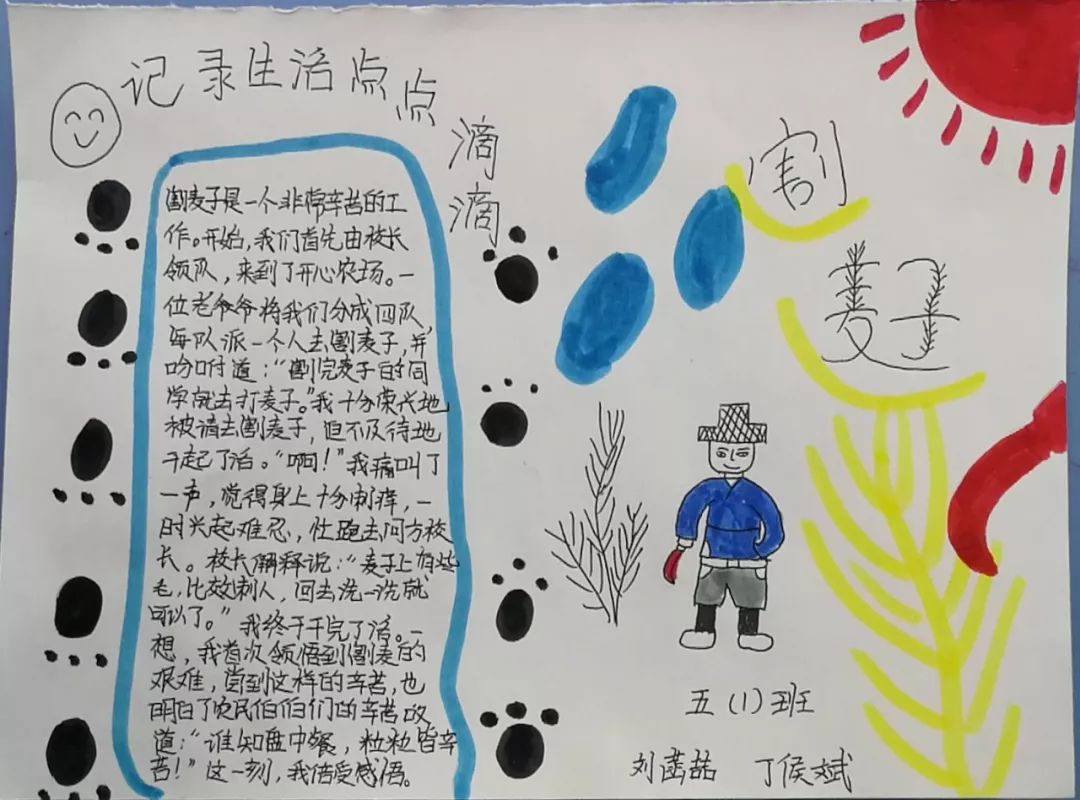 记录生活点点滴滴
割麦子是一个非常辛苦的工
作。开始,我们首先由校长
领队,来到了开心农场。一
位老爷爷将我们分成四队,
每队派一个人去割麦子,并
吩咐道:“割完麦子的同
学就去打麦子。”我十分荣兴地
被请去割麦子,但不及待地
干起了活。“啊!”我痛叫了
一声,觉得身上十分刺痒,一
时兴起难忍,忙跑去问方校
长。校长解释说:“麦子上有些
毛,比较刺人,回去洗一洗就
可以了。”我终于干完了活。一
想,我首次领悟到割麦的
艰难,尝到这样的辛苦,也
明白了农民伯伯们的辛苦
道:“谁知盘中餐,粒粒皆辛
苦!”这一刻,我倍受感悟。
割
麦子
五(1)班
刘 喆 丁侯斌